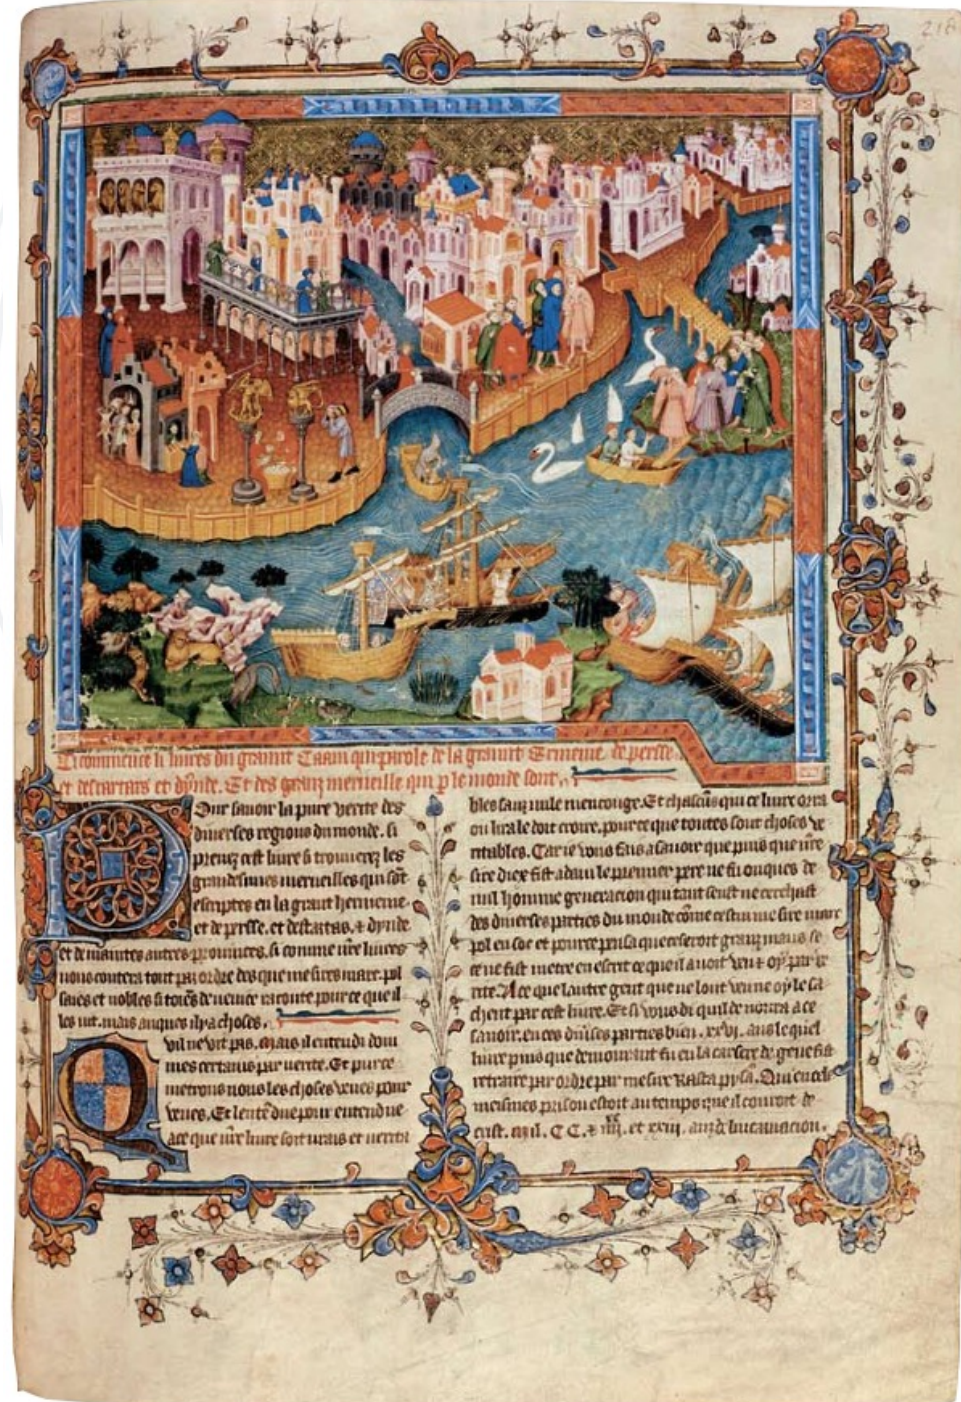 218
Ci commence li livres du graunt Caam qui parole de la graunt Ermenie. de persse.
et des tartars et dynde. Et des granz merueille qui p le monde sont.
Our sauoir la pure verite des
diuerses regions du monde. si
prenez cest liure si trouuerez les
grandesimes merueilles qui sont
escriptes en la grant hermenie.
et de persse. et des tatars. & dynde
et de maintes autres prouinces. si comme nre liures
nous contera tout par ordre des que mesires marc pol
saies et nobles citoiens de venice raconte pour ce que il
les vit. mais auques ihy a choses.
Q vil ne vit pas. Mais il entendi dom
mes certains par verite. Et pur ce
metrons nous les choses veues pour
veues. Et lentendue pour entendue
a ce que nre liure soit vrais et verita
bles sanz nule mencouge. Et chascuns qui ce liure orra
ou lira le doit croire. pour ce que toutes sont choses ve
ritables. Car ie vous fais a sauoir que puis que nre
sire diex fist adam le premier pere ne fu onques de
nul homme generacion qui tant seust ne cerchast
des diuerses parties du monde come cestui mesire marc
pol en soc et pource pensa que ce seroit granz maus se
ce ne fist metre en escrit ce que il auoit veu & oy par ve
rite. A ce que lautre gent que ne lont veue oy le sa
chent par cest liure. Et si vous di quil demora a ce
sauoir. en ces diuses parties bien .xxvi. ans le quel
liure puis que demourant fu en la carsere de genes fist
retraire par ordre par mesire Rasta pysan. Qui en cele
meismes prison estoit au temps que il couroit de
crist. mil. C C. & iiii. et xviii. anz de lincarnacion.